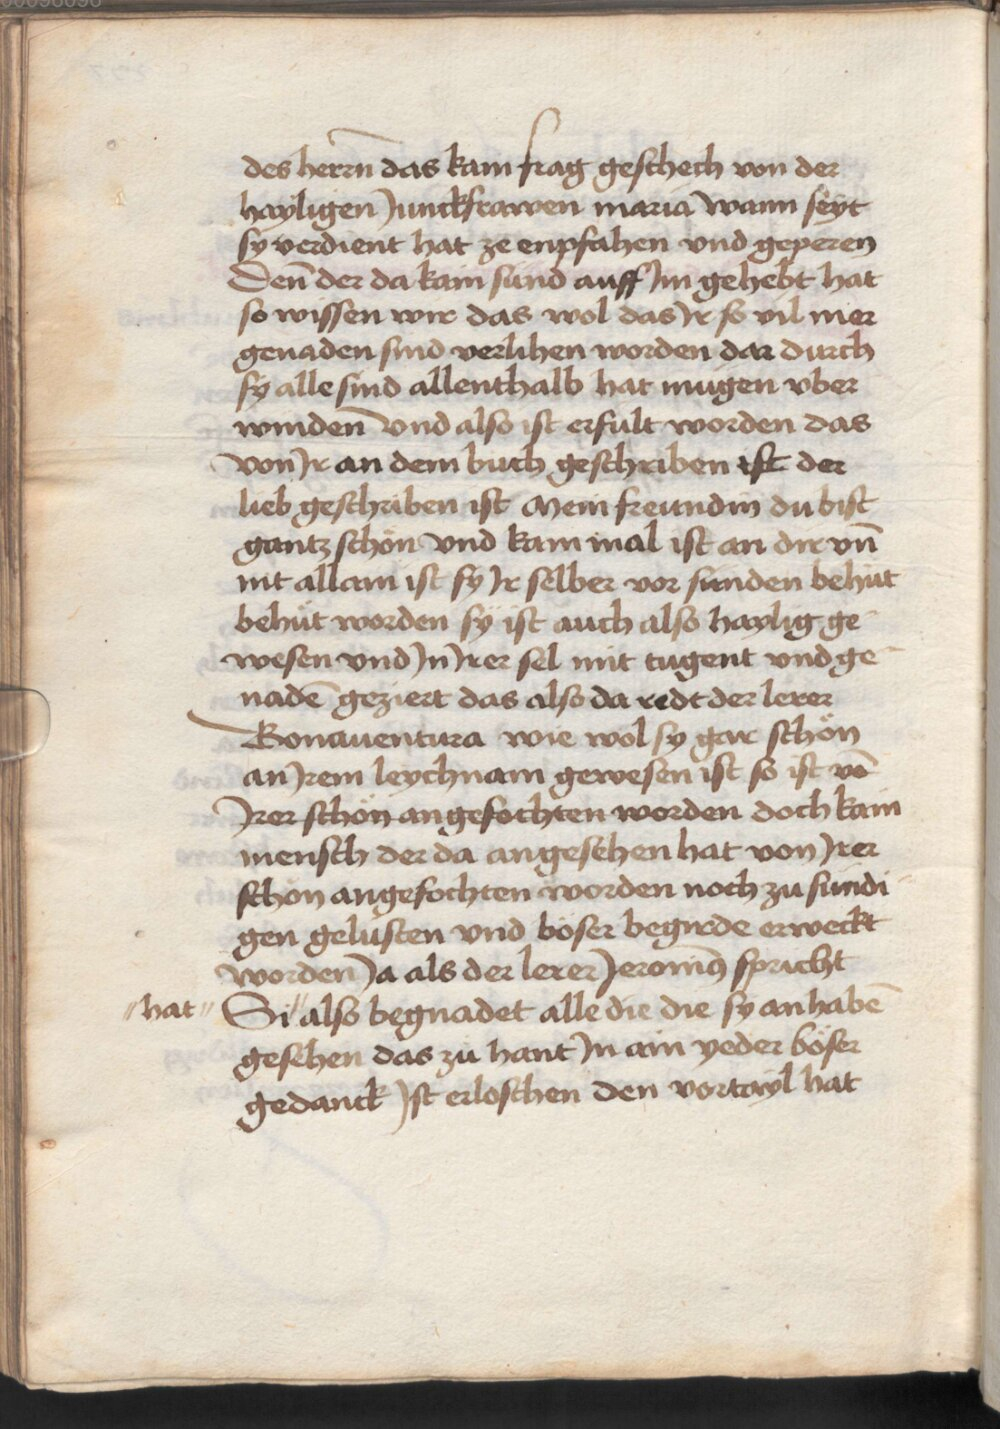 des herrn̄ das kain frag geschech von der
hayligen Junckfrawen maria wann seyt
sy verdient hat ze enpfahen vnd geperen
Den̄ der da kain sünd auff Im gehebt hat
so wissen wir das wol das Ir so vil mer
genaden sind verlihen worden dar durch
sy alle sind allenthalb hat mugen vber
winden̄ vnd also ist erfult worden das
von Ir an dem buch geschriben ist der
lieb geschriben ist Mein freundin du bist
gantz schön vnd kain mal ist an dir vn̄
nit allain ist sy Ir selber vor sunden behüt
behüt worden sy ist auch also haylig ge¬
wesen vnd In Irer sel mit tugent vnd ge¬
nadē geziert das also da redt der lerer
Bonauentura wie wol sy gar schön
an Irem leychnam gewesen ist so ist vō
Irer schön angefochten worden doch kain
mensch der da angesehen hat von Irer
schön angefochten worden noch zu sündi¬
gen gelusten vnd böser begirde erweckt
worden Ja als der lerer Jeronimꝰ spricht
"hat" Si" also begnadet alle die die sy an habē
gesehen das zü hant In ain yeder böser
gedanck Ist erloschen den vortayl hat